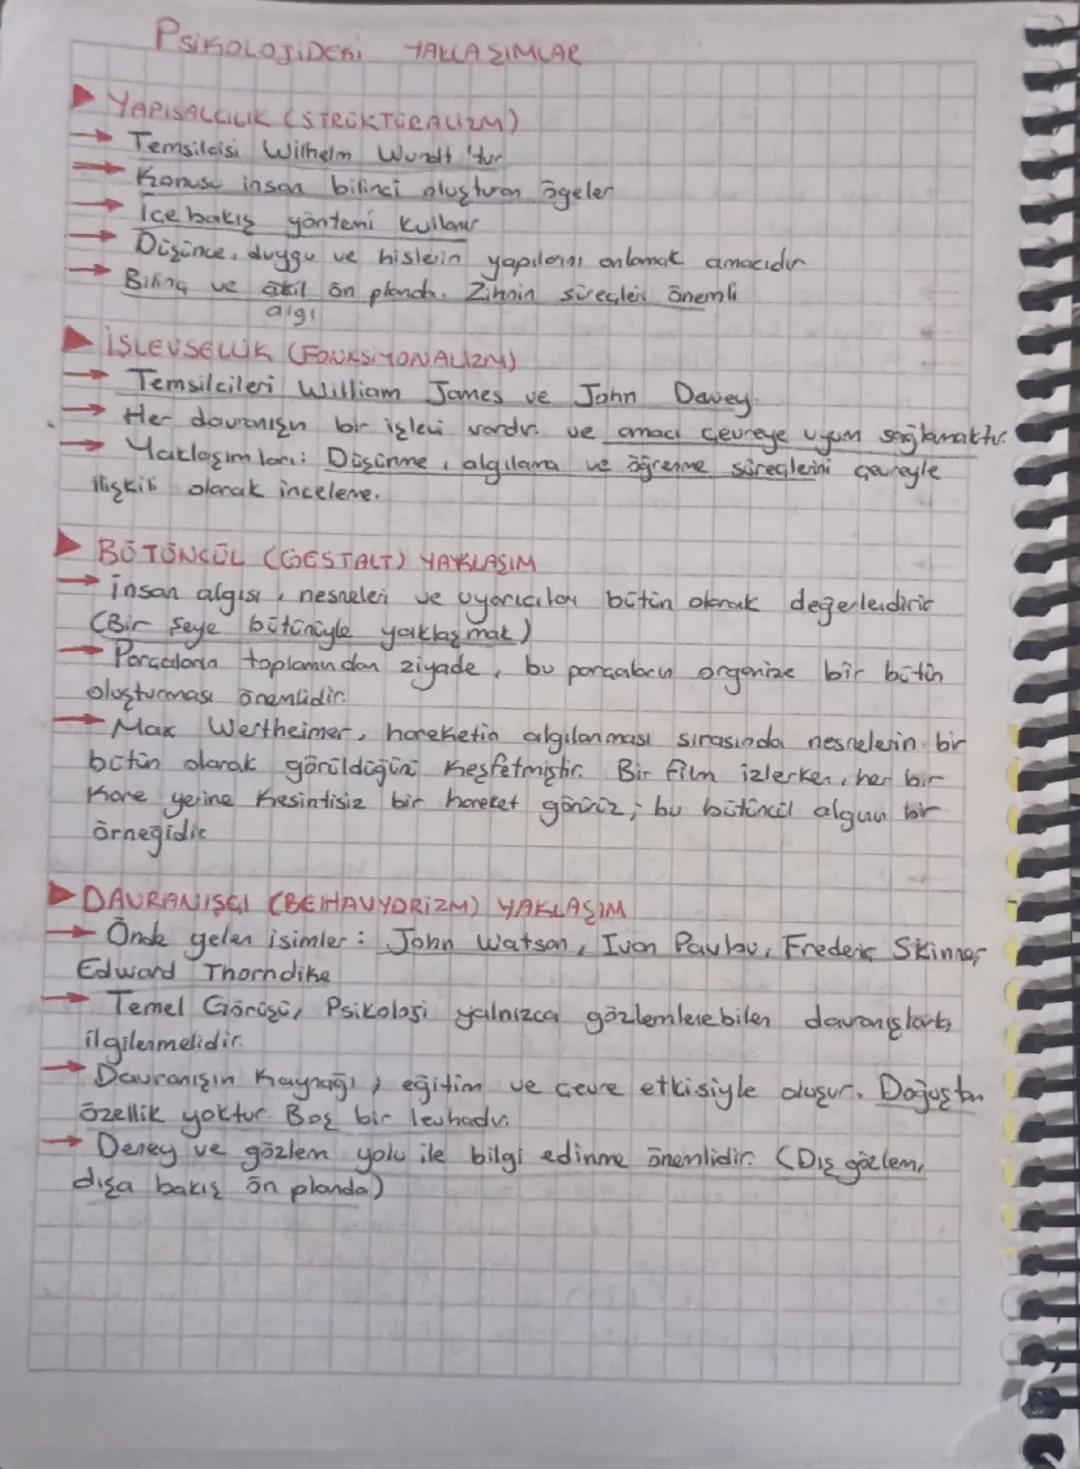 PSİKOLOJİDEKİ YAKLAŞIMLAR
YAPISALCILIK (STRÜKTÜRALİZM)
Temsilcisi Wilhelm Wundt 'tur
Konusu insan bilinci oluşturan ögeler
İçe bakış yöntemi kullanır
Düşünce, duygu ve hislerin yapılarını anlamak amacıdır
Bilinç ve akıl ön planda. Zihnin süreçleri önemli
algı
İŞLEVSELLİK (FONKSİYONALİZM)
Temsilcileri William James ve John Dewey.
Her davranışın bir işlevi vardır. ve amacı çevreye uyum sağlamaktır.
Yaklaşımları: Düşünme, algılama ve öğrenme süreçlerini çevreyle
ilişkili olarak inceleme.
BÜTÜNCÜL (GESTALT) YAKLAŞIM
İnsan algısı, nesneleri ve uyarıcıları bütün olarak değerlendirir
(Bir şeye bütünüyle yaklaşmak)
Parçaların toplamından ziyade, bu parçaların organize bir bütün
oluşturması önemlidir.
Max Wertheimer, hareketin algılanması sırasında nesnelerin bir
bütün olarak görüldüğünü keşfetmiştir. Bir film izlerken, her bir
kare yerine kesintisiz bir hareket görürüz; bu bütüncül algının bir
örneğidir
DAVRANIŞÇI (BEİHAVYORİZM) YAKLAŞIM
Önde gelen isimler: John Watson, Ivan Pavlov, Frederic Skinner,
Edward Thorndike
Temel Görüşü, Psikoloji yalnızca gözlemlenebilen davranışlarla
ilgilenmelidir.
Davranışın Kaynağı, eğitim ve çevre etkisiyle oluşur. Doğuştan
özellik yoktur. Boş bir levhadır.
Deney ve gözlem yolu ile bilgi edinme önemlidir. (Dış gözlem,
dışa bakış ön planda)